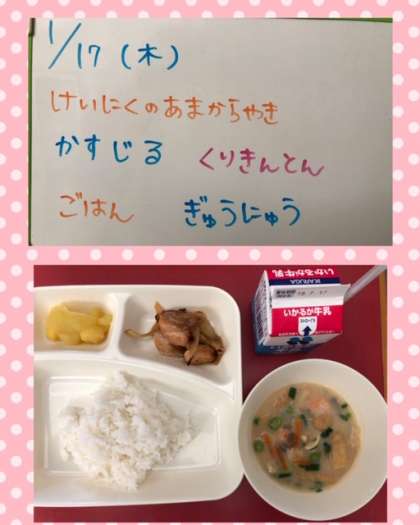 1/17(木)
けいにくのあまからやき
かすじる くりきんとん
ごはん ぎゅうにゅう
いかるが牛乳
IKARUGA
いかるが牛乳